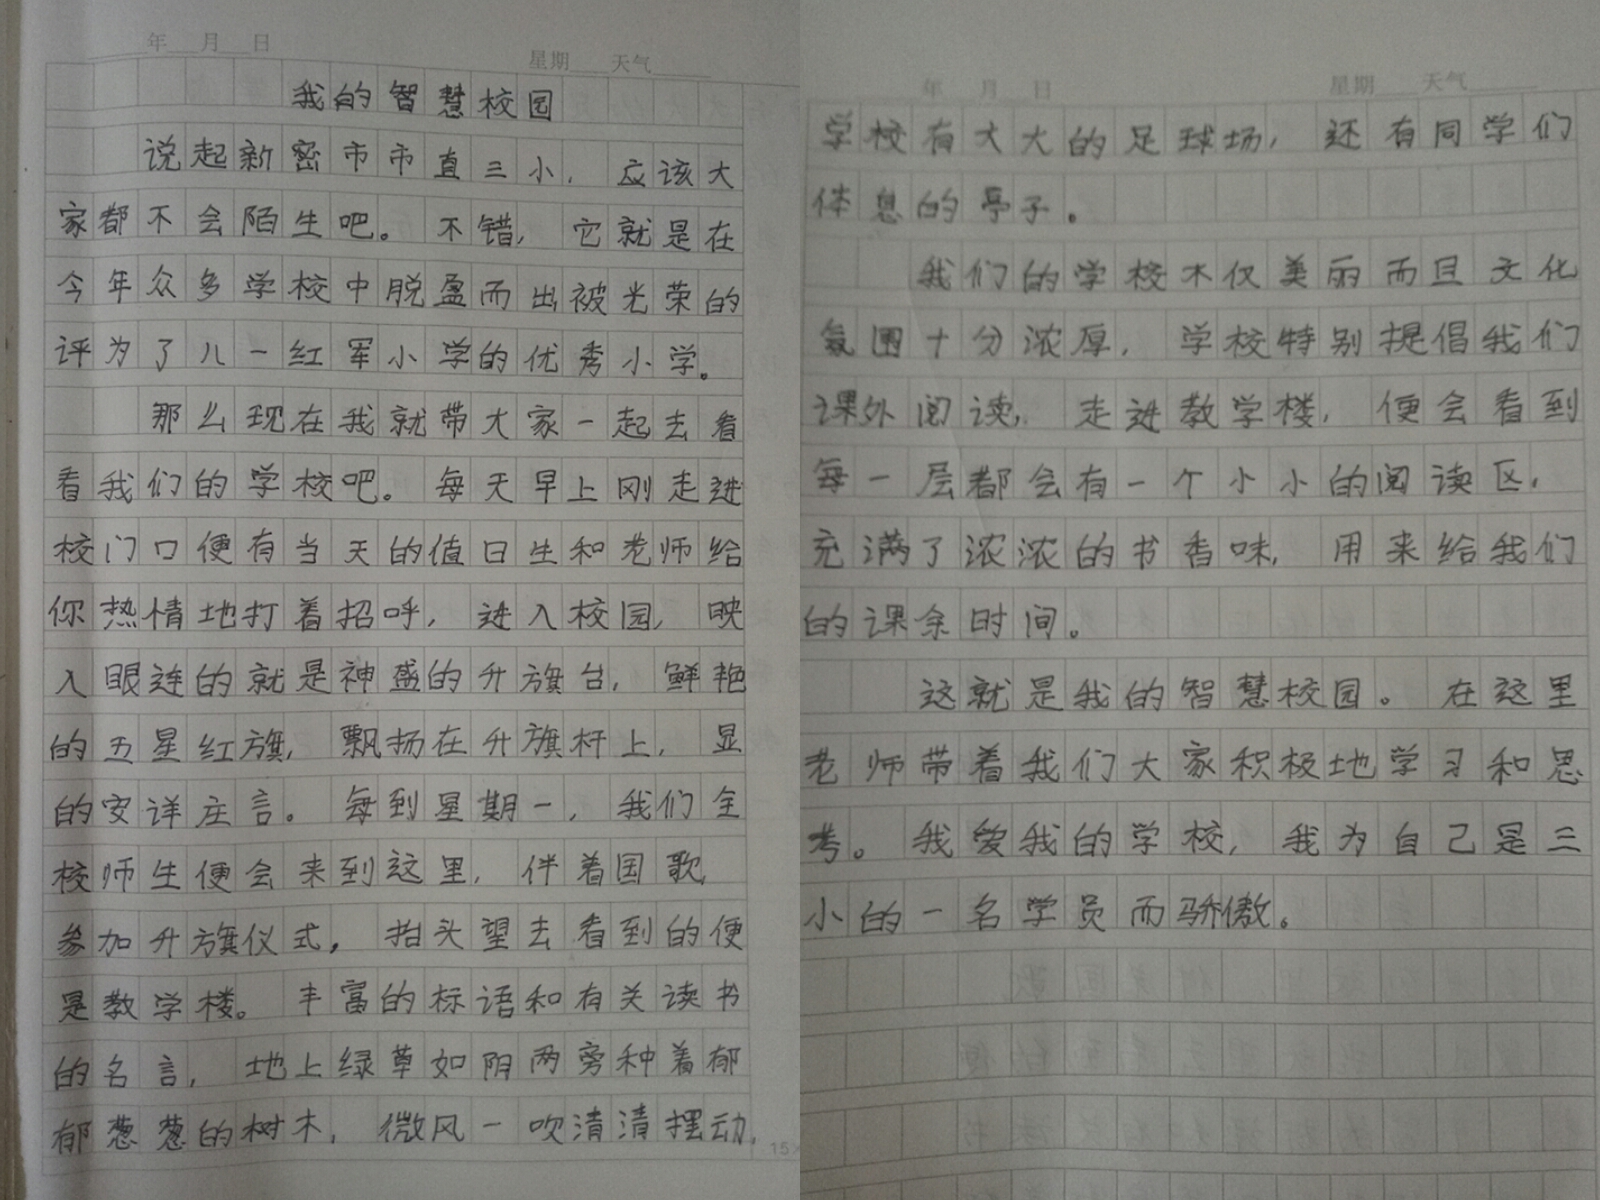 年 月 日
星期 天气
我的智慧校园
说起新密市市直三小，应该大
家都不会陌生吧。不错，它就是在
今年众多学校中脱盈而出被光荣的
评为了八一红军小学的优秀小学。
那么现在我就带大家一起去看
看我们的学校吧。每天早上刚走进
校门口便有当天的值日生和老师给
你热情地打着招呼，进入校园，映
入眼连的就是神盛的升旗台，鲜艳
的五星红旗，飘扬在升旗杆上，显
的安详庄言。每到星期一，我们全
校师生便会来到这里，伴着国歌，
参加升旗仪式，抬头望去看到的便
是教学楼。丰富的标语和有关读书
的名言，地上绿草如阴两旁种着郁
郁葱葱的树木，微风一吹清清摆动，
15×
年 月 日
星期 天气
学校有大大的足球场，还有同学们
体息的亭子。
我们的学校不仅美丽而且文化
氛围十分浓厚，学校特别提倡我们
课外阅读，走进教学楼，便会看到
每一层都会有一个小小的阅读区，
充满了浓浓的书香味，用来给我们
的课余时间。
这就是我的智慧校园。在这里
老师带着我们大家积极地学习和思
考。我爱我的学校，我为自己是三
小的一名学员而骄傲。